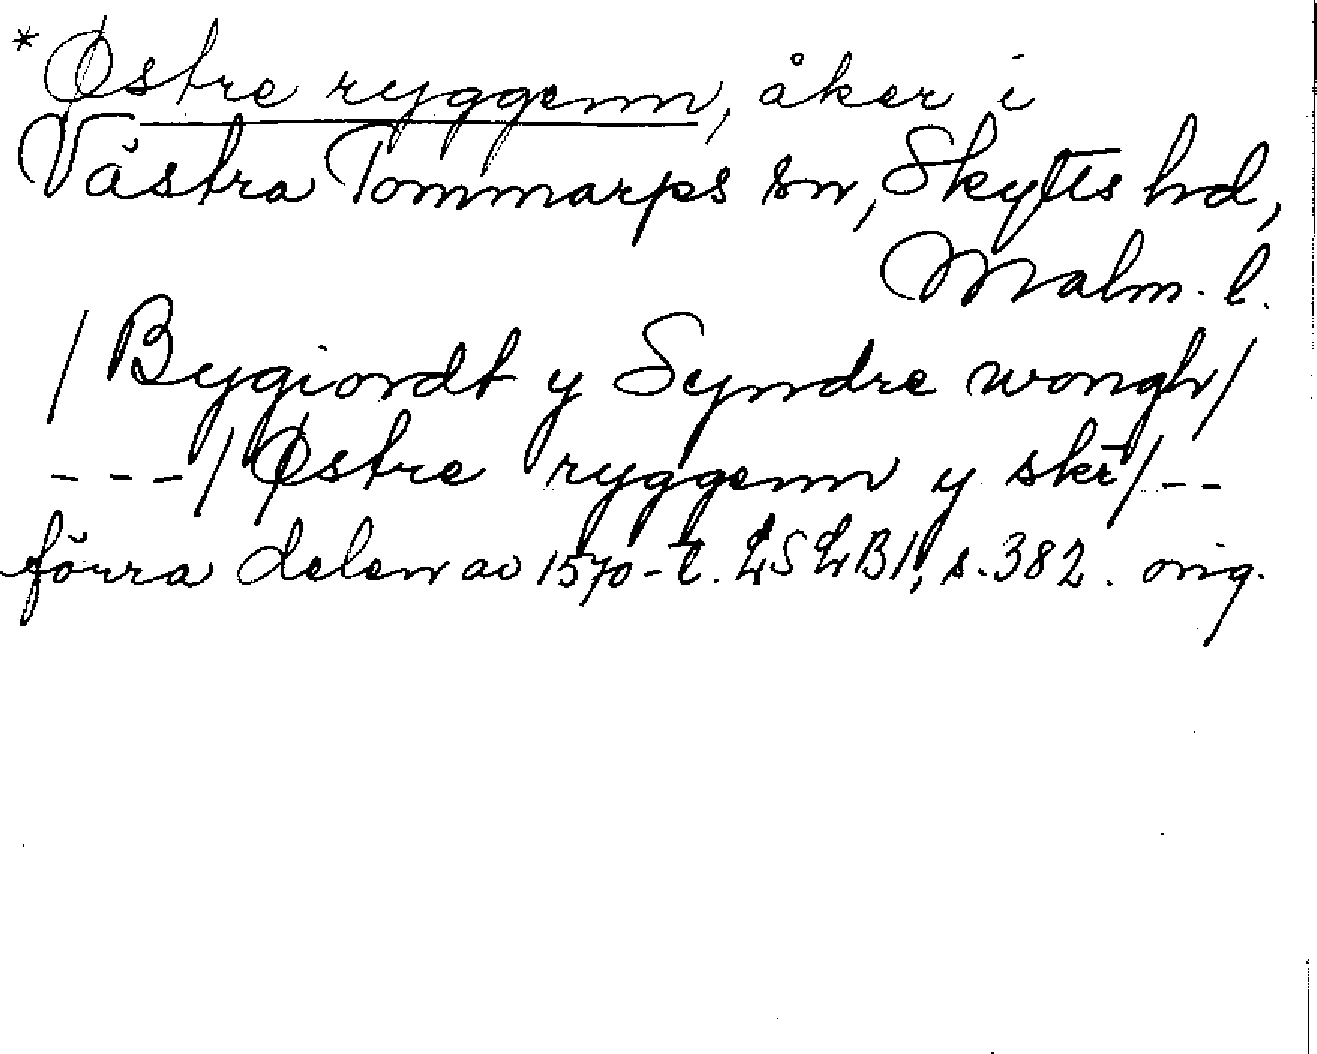 *Østre ryggenn, åker i
Västra Tommarps sn, Skytts hd,
Malm. l.
/Bygiordt y Syndre wongh/
---/Østre ryggenn y skē/--
förra delen av 1570-t. LSLB1, s. 382. orig.